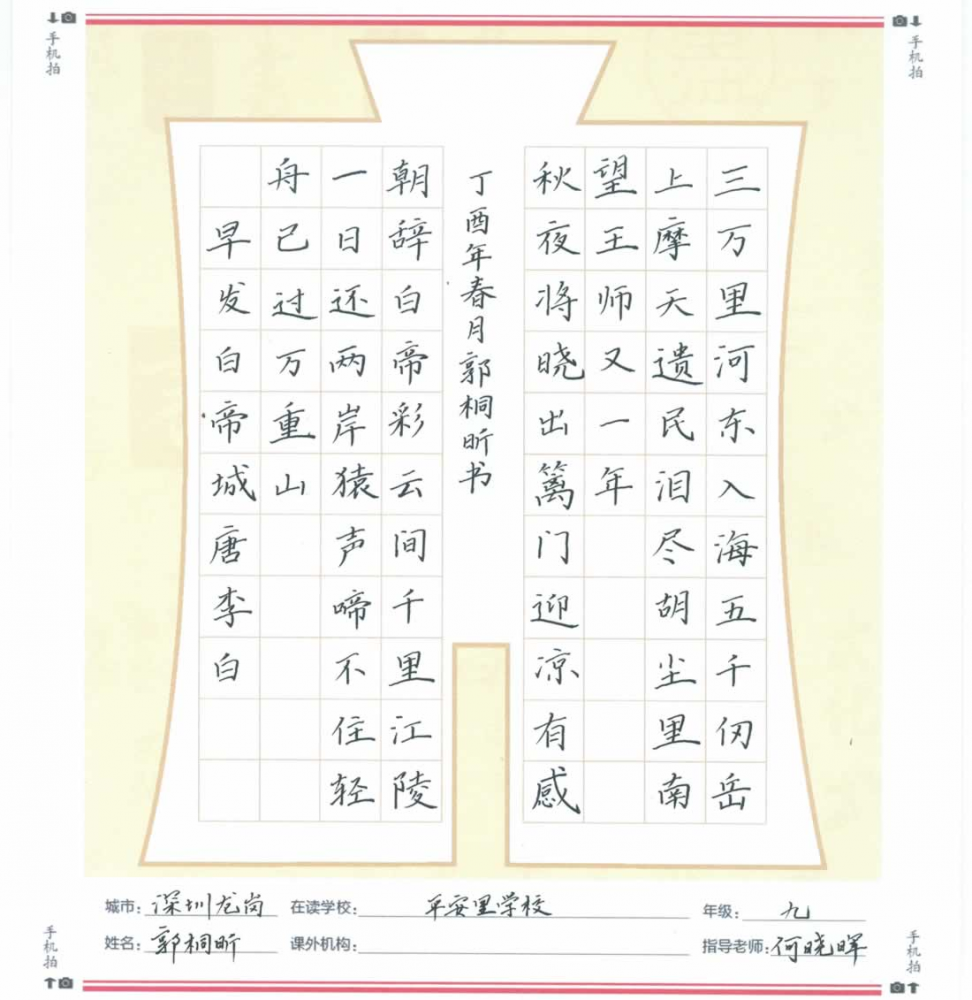 手机拍
手机拍
三万里河东入海五千仞岳
上摩天遗民泪尽胡尘里南
望王师又一年
秋夜将晓出篱门迎凉有感
丁酉年春月郭桐昕书
朝辞白帝彩云间千里江陵
一日还两岸猿声啼不住轻
舟已过万重山
早发白帝城唐李白
城市：深圳龙岗 在读学校：平安里学校 年级：九
姓名：郭桐昕 课外机构： 指导老师：何晓晖
手机拍
手机拍